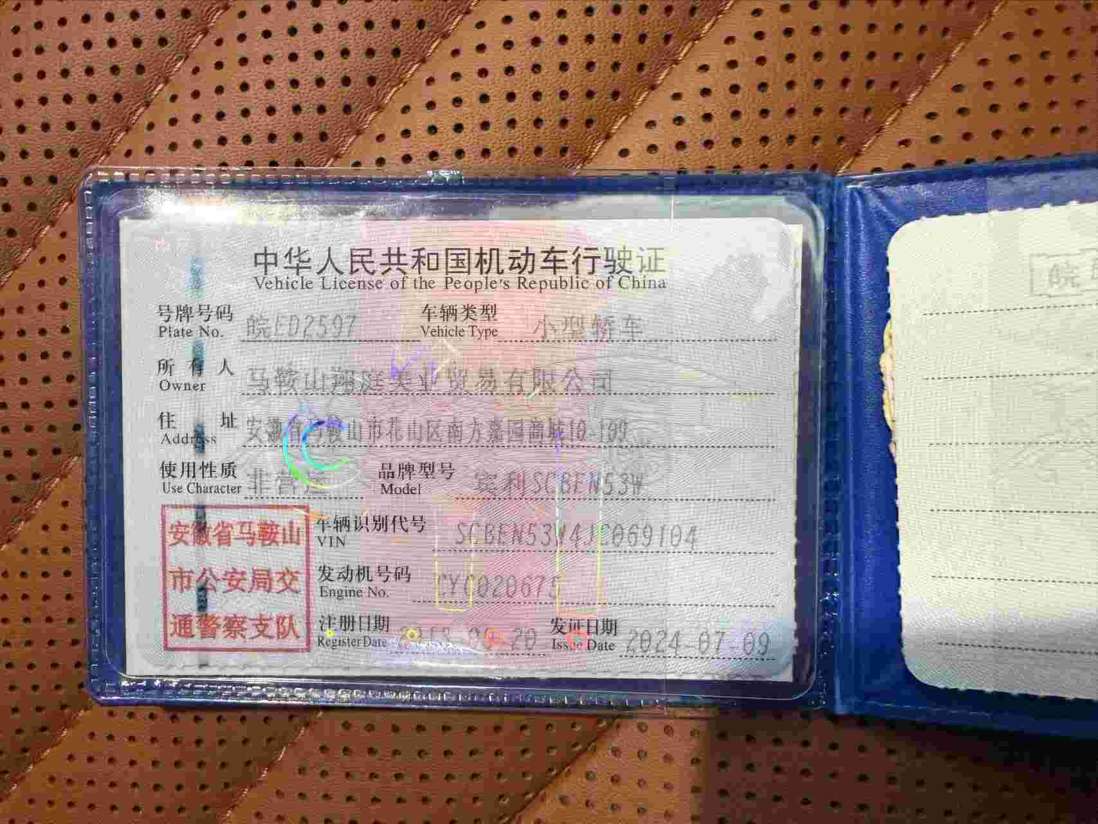 中华人民共和国机动车行驶证
Vehicle License of the People's Republic of China
号牌号码 皖ED2597 车辆类型 小型轿车
Plate No. Vehicle Type
所有人 马鞍山翔庭实业贸易有限公司
Owner
住址 安徽省马鞍山市花山区南方嘉园商城10-109
Address
使用性质 非营运 品牌型号 宾利SCBEN53W
Use Character Model
安徽省马鞍山
市公安局交
通警察支队
车辆识别代号 SCBEN53W4JC069104
VIN
发动机号码 CYC020675
Engine No.
注册日期 发证日期 2024-07-09
Register Date Issue Date
皖